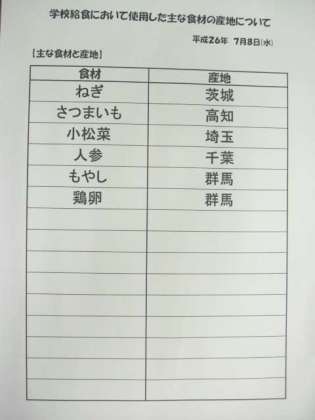 学校給食において使用した主な食材の産地について
平成26年 7月8日(水)
【主な食材と産地】
食材 産地
ねぎ 茨城
さつまいも 高知
小松菜 埼玉
人参 千葉
もやし 群馬
鶏卵 群馬